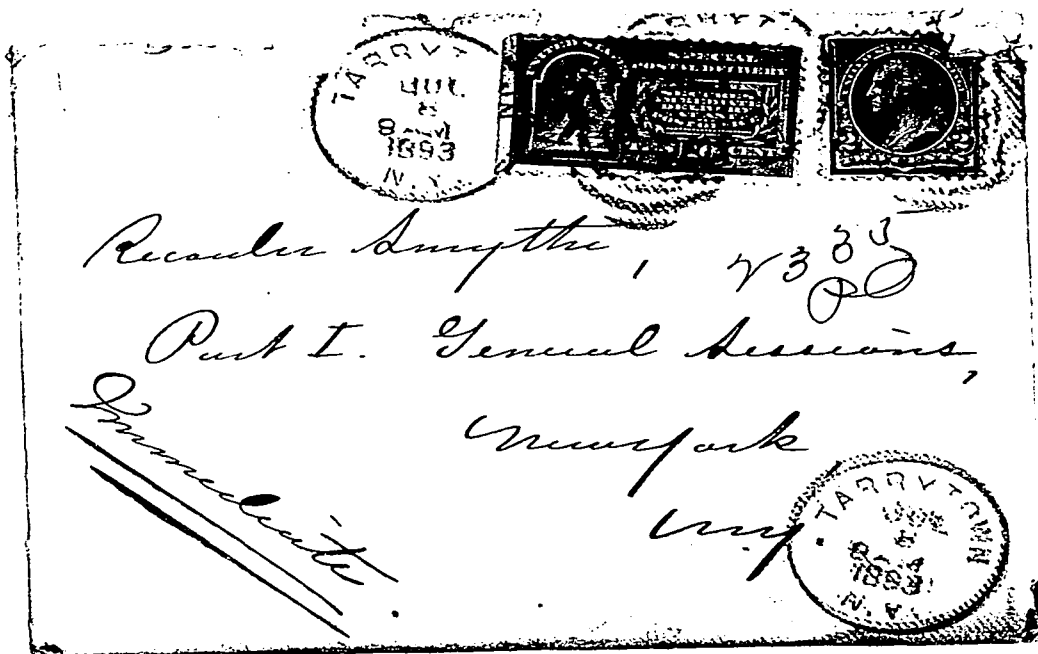 TARRYT
JUL
8
8 AM
1893
N.Y.
SPECIAL
POSTAL DELIVERY
Recorder Smythe,
2335
Part I. General Sessions,
New York
N.Y.
Immediate
TARRYTOWN
1893
N.Y.